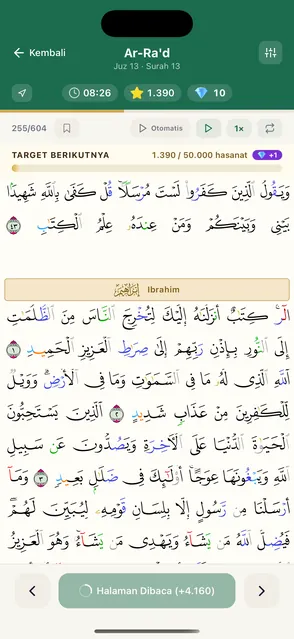 Kembali
Ar-Ra'd
Juz 13 · Surah 13
08:26
1.390
10
255/604
Otomatis
1×
TARGET BERIKUTNYA
1.390 / 50.000 hasanat
+1
وَيَقُولُ الَّذِينَ كَفَرُوا لَسْتَ مُرْسَلًا قُلْ كَفَىٰ بِاللَّهِ شَهِيدًا
بَيْنِي وَبَيْنَكُمْ وَمَنْ عِندَهُ عِلْمُ الْكِتَابِ ٤٣
إبراهيم Ibrahim
الٓر كِتَابٌ أَنزَلْنَاهُ إِلَيْكَ لِتُخْرِجَ النَّاسَ مِنَ الظُّلُمَاتِ
إِلَى النُّورِ بِإِذْنِ رَبِّهِمْ إِلَىٰ صِرَاطِ الْعَزِيزِ الْحَمِيدِ ١
اللَّهِ الَّذِي لَهُ مَا فِي السَّمَاوَاتِ وَمَا فِي الْأَرْضِ ۗ وَوَيْلٌ
لِّلْكَافِرِينَ مِنْ عَذَابٍ شَدِيدٍ ٢ الَّذِينَ يَسْتَحِبُّونَ
الْحَيَاةَ الدُّنْيَا عَلَى الْآخِرَةِ وَيَصُدُّونَ عَن سَبِيلِ
اللَّهِ وَيَبْغُونَهَا عِوَجًا أُولَٰئِكَ فِي ضَلَالٍ بَعِيدٍ ٣ وَمَا
أَرْسَلْنَا مِن رَّسُولٍ إِلَّا بِلِسَانِ قَوْمِهِ لِيُبَيِّنَ لَهُمْ
فَيُضِلُّ اللَّهُ مَن يَشَاءُ وَيَهْدِي مَن يَشَاءُ وَهُوَ الْعَزِيزُ
Halaman Dibaca (+4.160)